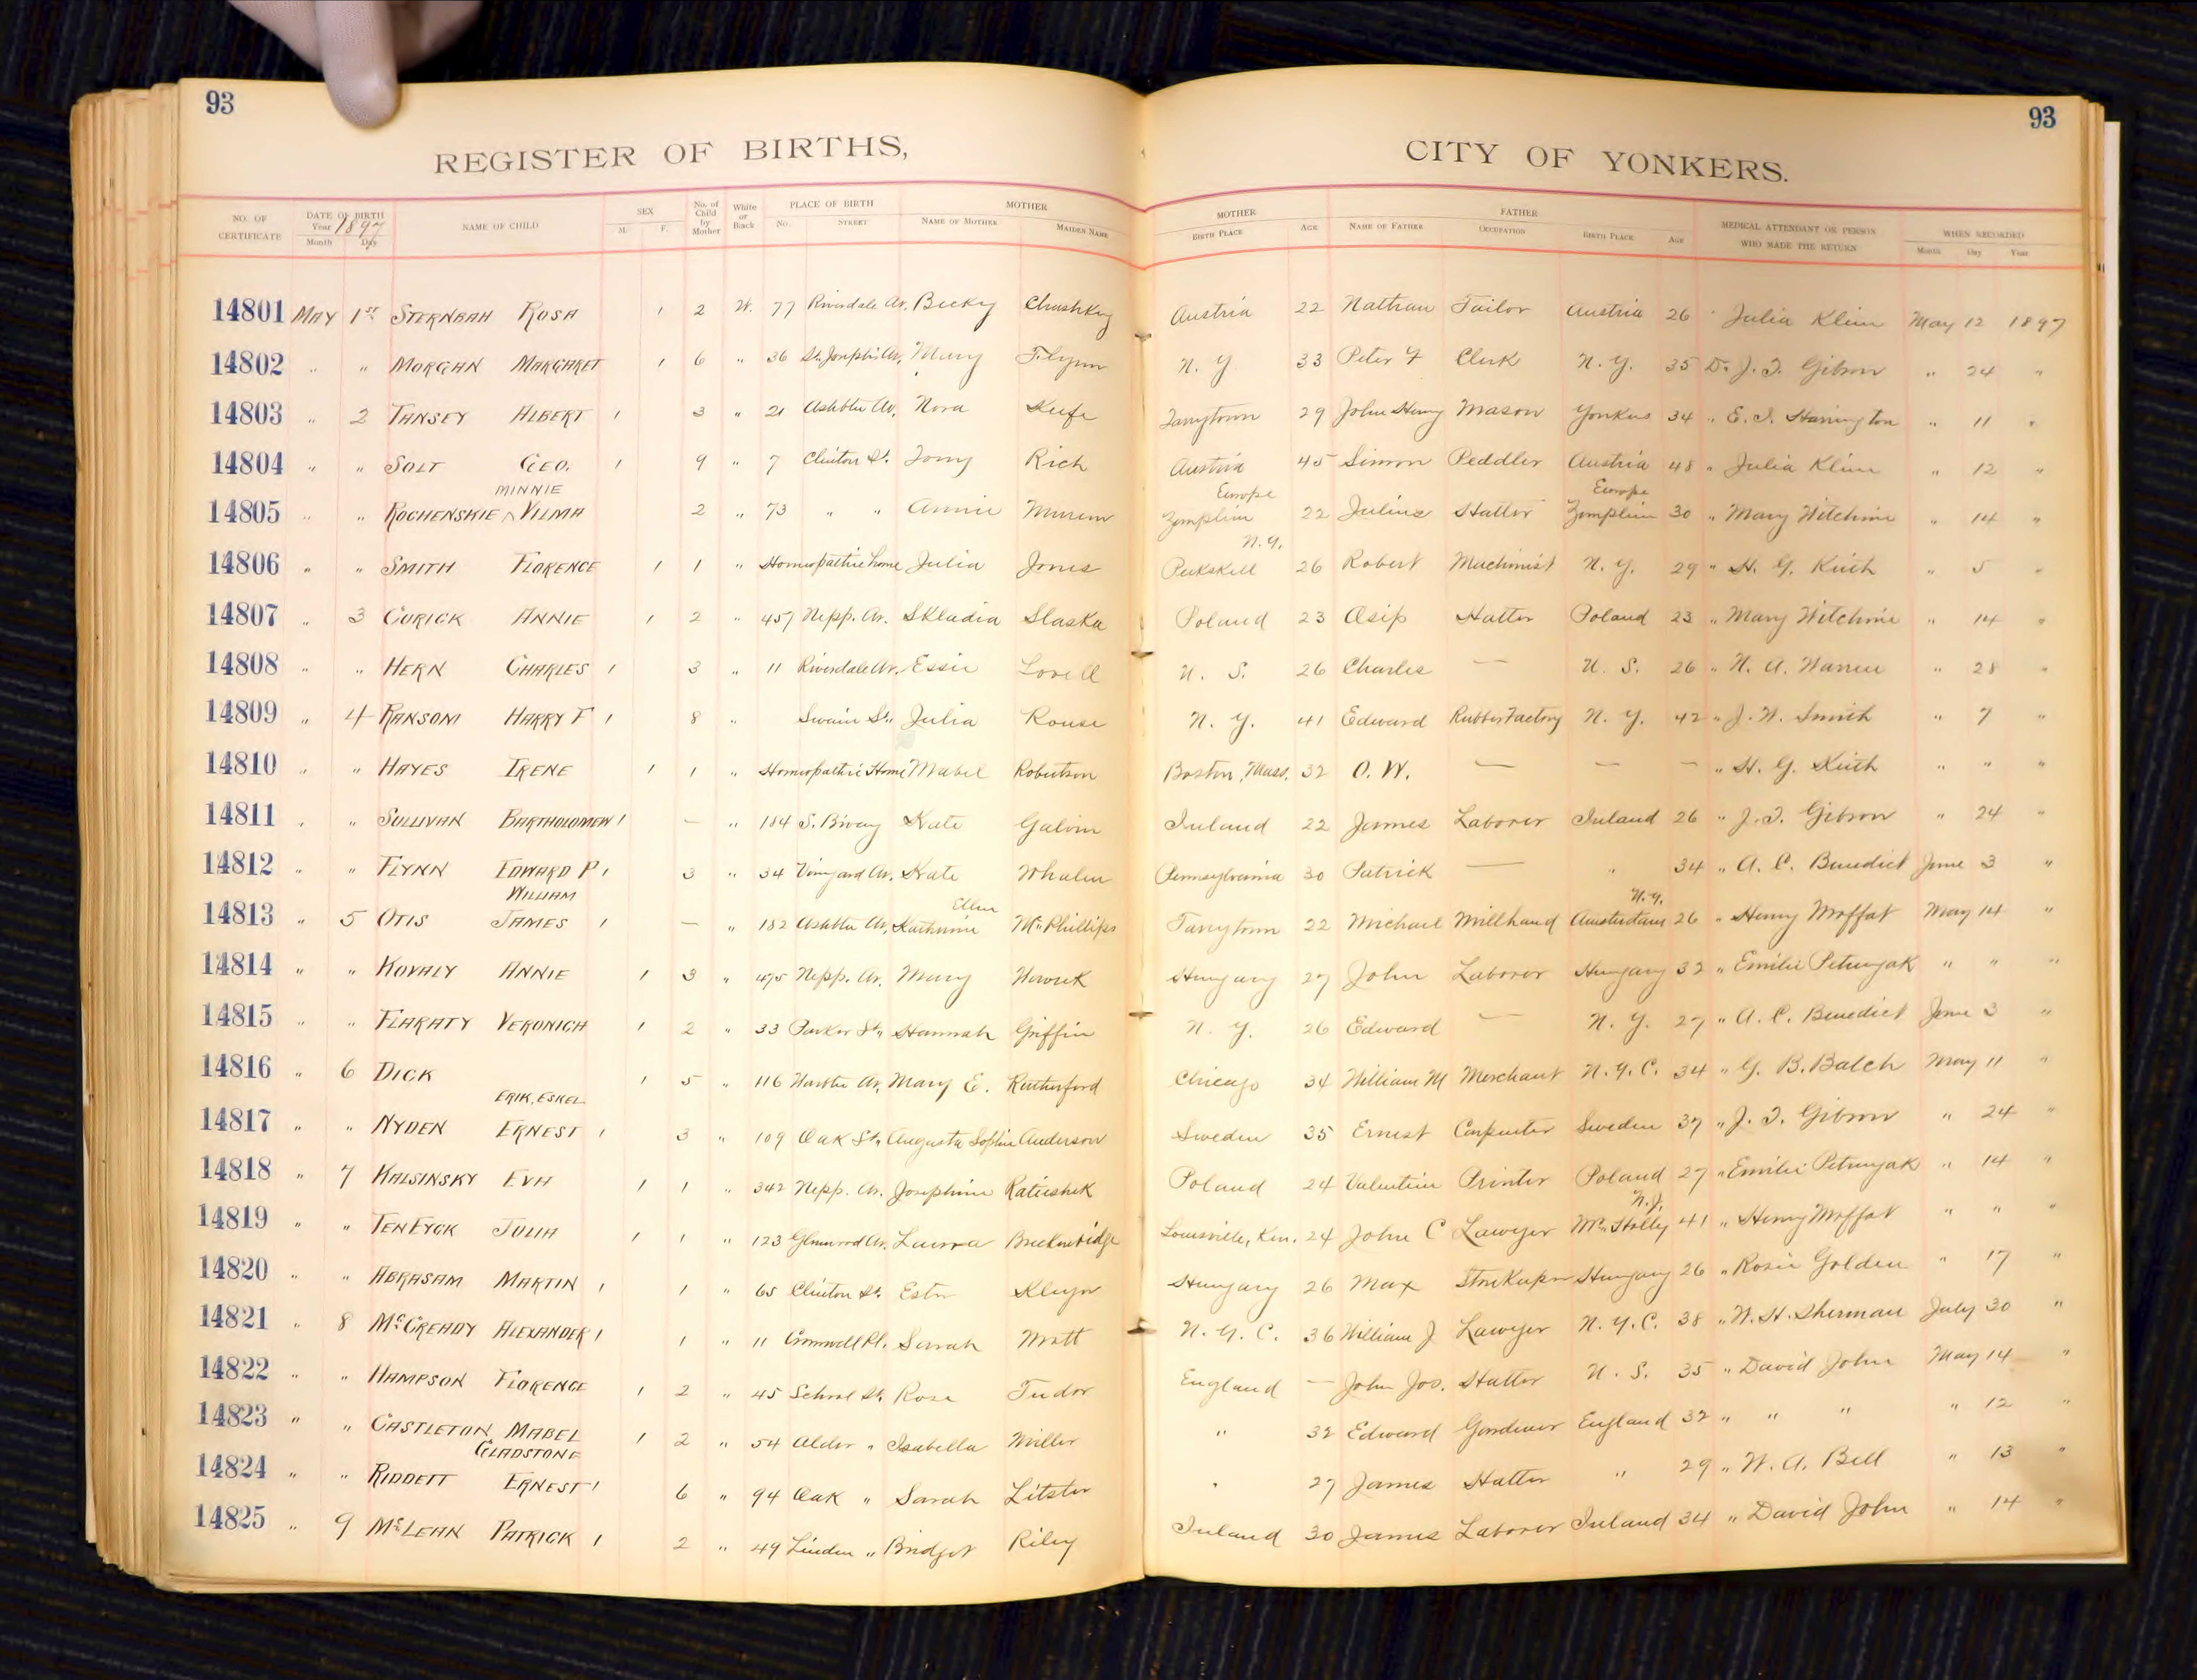 93
93
REGISTER OF BIRTHS,
CITY OF YONKERS.
NO. OF CERTIFICATE DATE OF BIRTH Year 1897 Month Day NAME OF CHILD SEX M. F. No. of Child by Mother White or Black PLACE OF BIRTH No. STREET MOTHER NAME OF MOTHER MAIDEN NAME MOTHER BIRTH PLACE AGE FATHER NAME OF FATHER OCCUPATION BIRTH PLACE AGE MEDICAL ATTENDANT OR PERSON WHO MADE THE RETURN WHEN RECORDED Month Day Year
14801 MAY 1ST STERNBAH ROSA 1 2 W. 77 Riverdale Av. Becky Austria 22 Nathan Tailor Austria 26 " Julia Klein May 12 1897
14802 " " MORGAN MARGARET 1 6 " 36 St. Joseph's Av. Mary Flynn N. Y 33 Peter F Clerk N. Y. 35 Dr. J. I. Gibson " 24 "
14803 " 2 TANSEY ALBERT 1 3 " 21 Ashbtn Av. Nora Keefe Tarrytown 29 John Henry Mason Yonkers 34 " E. I. Harrington " 11 "
14804 " " SOLT GEO. 1 9 " 7 Clinton St. Rich Austria 45 Simon Peddler Austria 48 " Julia Klein " 12 "
MINNIE Europe Europe
14805 " " ROCHENSKIE ^ VILMA 2 " 73 " " Annie Zemplin 22 Julius Hatter Zemplin 30 " Mary Witchine " 14 "
N.Y.
14806 " " SMITH FLORENCE 1 1 " Homeopathic home Julia Jones Peekskill 26 Robert Machinist N. Y. 29 " H. G. Keith " 5 "
14807 " 3 CURICK ANNIE 1 2 " 457 Nepp. Av. Skladia Slaska Poland 23 Osip Hatter Poland 23 " Mary Witchine " 14 "
14808 " " HERN CHARLES 1 3 " 11 Riverdale Av. Essie Lovell U. S. 26 Charles — U. S. 26 " N. A. Warren " 28 "
14809 " 4 RANSOM HARRY F 1 8 " Swain St. Julia Rouse N. Y. 41 Edward Rubber Factory N. Y. 42 " J. W. Smith " 7 "
14810 " " HAYES IRENE 1 1 " Homeopathic Home Mabel Robertson Boston, Mass. 32 O. W. — — — " H. G. Keith " " "
14811 " " SULLIVAN BARTHOLOMEW 1 — " 184 S. Bway Kate Galvin Ireland 22 James Laborer Ireland 26 " J. I. Gibson " 24 "
14812 " " FLYNN EDWARD P 1 3 " 34 Vineyard Av. Kate Whalen Pennsylvania 30 Patrick — " 34 " A. C. Benedict June 3 "
WILLIAM Ellen N.Y.
14813 " 5 OTIS JAMES 1 — " 182 Ashbtn Av. Katherine McPhillips Tarrytown 22 Michael Millhand Amsterdam 26 " Henry Moffat May 14 "
14814 " " KOVALY ANNIE 1 3 " 475 Nepp. Av. Mary Hungary 27 John Laborer Hungary 32 " Emilie Petrunyak " " "
14815 " " FLARATY VERONICA 1 2 " 33 Parker St. Hannah Griffin N. Y. 26 Edward — N. Y. 27 " A. C. Benedict June 3 "
14816 " 6 DICK 1 5 " 116 Av. Mary E. Rutherford Chicago 34 William M Merchant N. Y. C. 34 " G. B. Balch May 11 "
ERIK, ESKEL
14817 " " NYDEN ERNEST 1 3 " 109 Oak St. Augusta Sophia Anderson Sweden 35 Ernest Carpenter Sweden 37 " J. I. Gibson " 24 "
14818 " 7 KALSINSKY EVA 1 1 " 342 Nepp. Av. Josephine Ratieshek Poland 24 Valentine Printer Poland 27 " Emilie Petrunyak " 14 "
N.J.
14819 " " TENEYCK JULIA 1 1 " 123 Glenwood Av. Laura Breckenridge Louisville, Ken. 24 John C Lawyer Mt. Holly 41 " Henry Moffat " " "
14820 " " ABRASAM MARTIN 1 1 " 65 Clinton St. Ester Hungary 26 Max Storekeeper Hungary 26 " Rosie Golden " 17 "
14821 " 8 McCREADY ALEXANDER 1 1 " 11 Cromwell Pl. Sarah Watt N. Y. C. 36 William J. Lawyer N. Y. C. 38 " W. H. Sherman July 30 "
14822 " " HAMPSON FLORENCE 1 2 " 45 School St. Rose Tudor England — John Jos. Hatter U. S. 35 " David John May 14 "
14823 " " CASTLETON, MABEL 1 2 " 54 Alder " Isabella Miller " 32 Edward Gardener England 32 " " " " 12 "
GLADSTONE
14824 " " RIDDETT ERNEST 1 6 " 94 Oak " Sarah Litster " 27 James Hatter " 29 " W. A. Bell " 13 "
14825 " 9 McLEAN PATRICK 1 2 " 49 Linden " Bridget Riley Ireland 30 James Laborer Ireland 34 " David John " 14 "